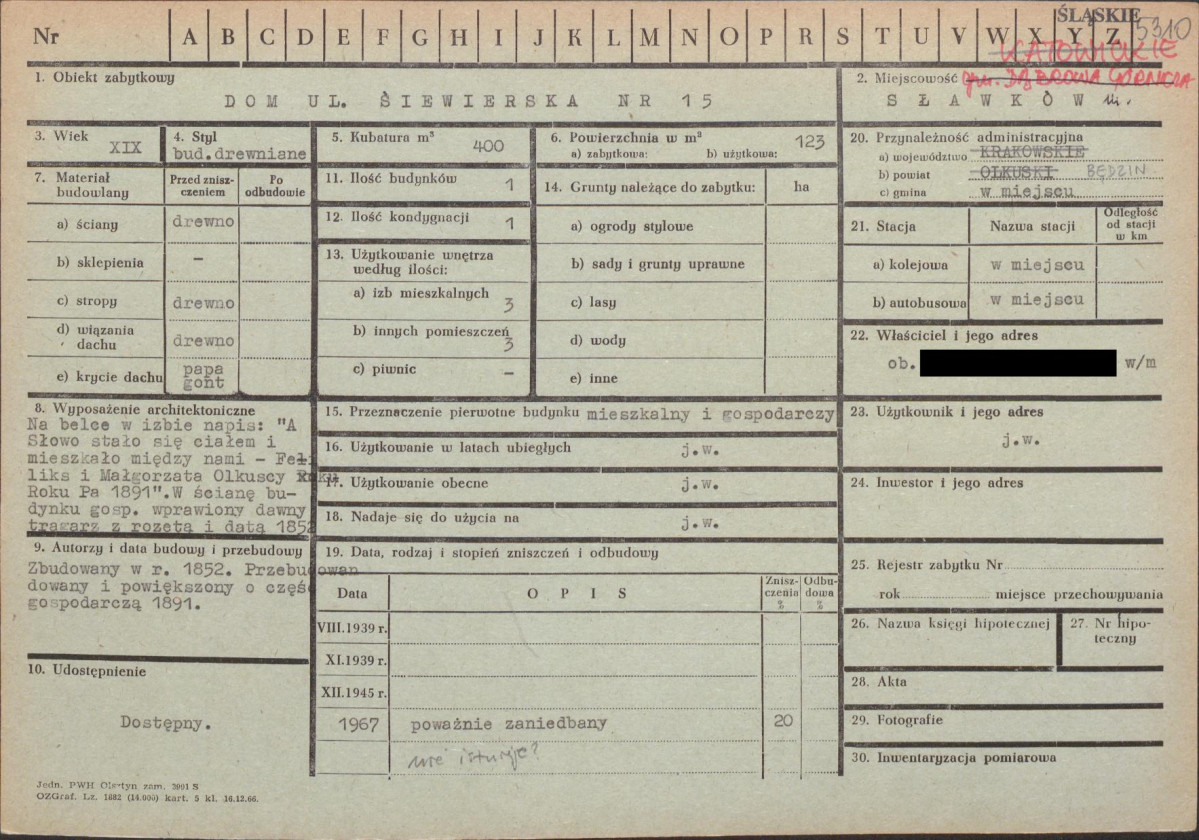 ŚLĄSKIE
5310
Nr A B C D E F G H I J K L M N O P R S T U V W X Y Z
KATOWICKIE
1. Obiekt zabytkowy
DOM UL. SIEWIERSKA NR 15
2. Miejscowość gm. DĄBROWA GÓRNICZA
SŁAWKÓW m.
3. Wiek
XIX
4. Styl
bud.drewniane
5. Kubatura m³
400
6. Powierzchnia w m²
a) zabytkowa: b) użytkowa:
123
20. Przynależność administracyjna
a) województwo KRAKOWSKIE
b) powiat OLKUSKI BĘDZIN
c) gmina w miejscu
7. Materiał budowlany
Przed zniszczeniem
Po odbudowie
a) ściany drewno
b) sklepienia –
c) stropy drewno
d) wiązania dachu drewno
e) krycie dachu papa gont
11. Ilość budynków 1
12. Ilość kondygnacji 1
13. Użytkowanie wnętrza
według ilości:
a) izb mieszkalnych 3
b) innych pomieszczeń 3
c) piwnic –
14. Grunty należące do zabytku: ha
a) ogrody stylowe
b) sady i grunty uprawne
c) lasy
d) wody
e) inne
21. Stacja
Nazwa stacji
Odległość od stacji w km
a) kolejowa w miejscu
b) autobusowa w miejscu
22. Właściciel i jego adres
ob. w/m
8. Wyposażenie architektoniczne
Na belce w izbie napis: "A
Słowo stało się ciałem i
mieszkało między nami – Feli
liks i Małgorzata Olkuscy Roku
Roku Pa 1891".W ścianę bu-
dynku gosp. wprawiony dawny
tragarz z rozetą i datą 1852
15. Przeznaczenie pierwotne budynku mieszkalny i gospodarczy
16. Użytkowanie w latach ubiegłych j.w.
17. Użytkowanie obecne j.w.
18. Nadaje się do użycia na j.w.
23. Użytkownik i jego adres
j.w.
24. Inwestor i jego adres
9. Autorzy i data budowy i przebudowy
Zbudowany w r. 1852. Przebudowan
dowany i powiększony o częś
gospodarczą 1891.
10. Udostępnienie
Dostępny.
19. Data, rodzaj i stopień zniszczeń i odbudowy
Data
OPIS
Zniszczenia %
Odbudowa %
VIII.1939 r.
XI.1939 r.
XII.1945 r.
1967 poważnie zaniedbany 20
nie istnieje?
25. Rejestr zabytku Nr
rok miejsce przechowywania
26. Nazwa księgi hipotecznej
27. Nr hipo-
teczny
28. Akta
29. Fotografie
30. Inwentaryzacja pomiarowa
Jedn. PWH Olsztyn zam. 3991 S
OZGraf. Lz. 1682 (14.000) kart. 5 kl. 16.12.66.